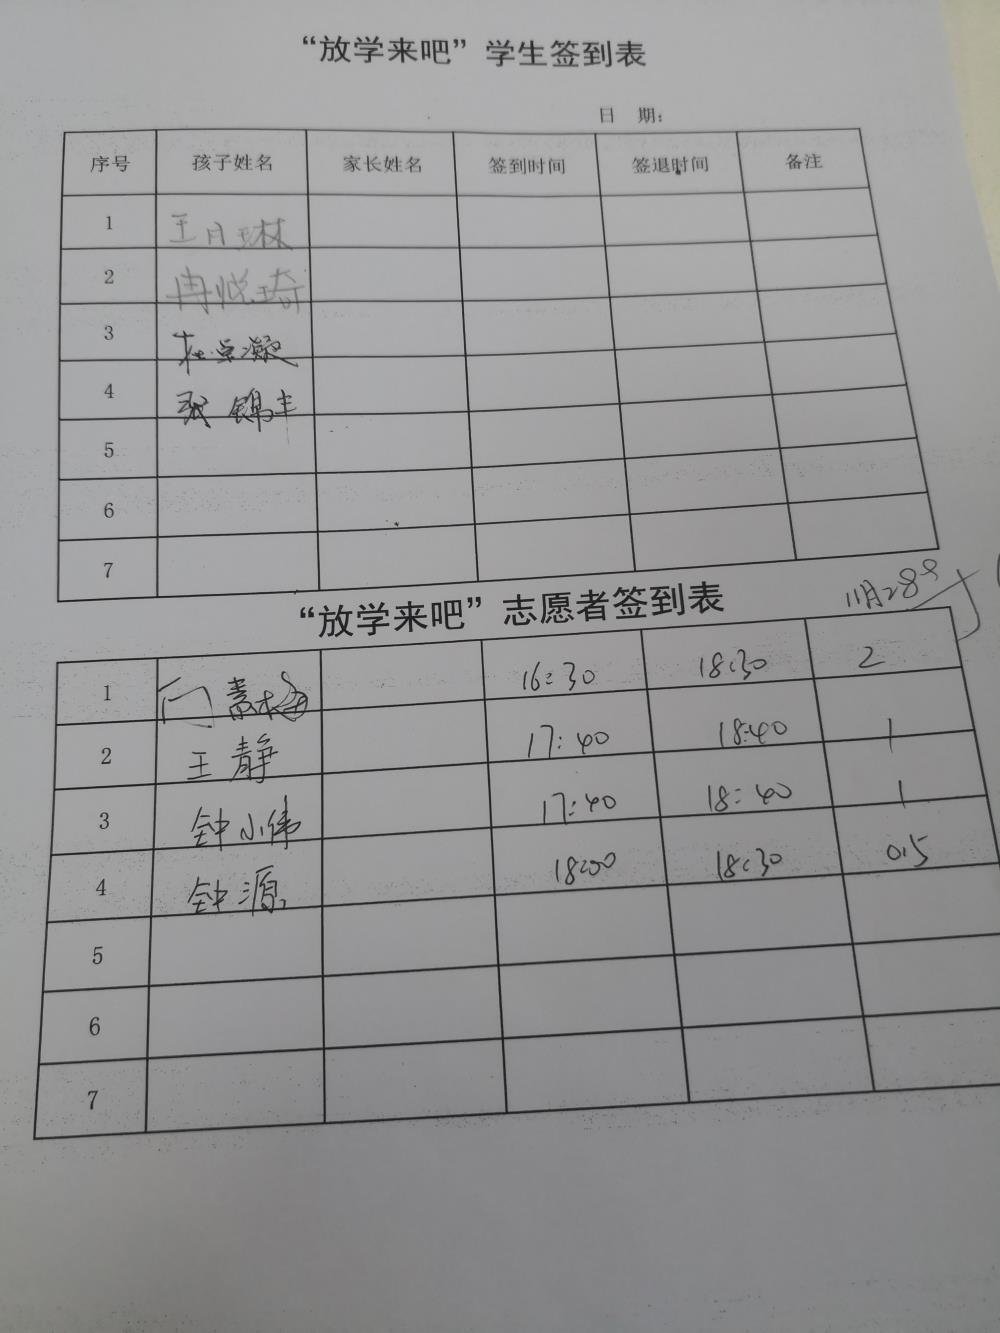 “放学来吧”学生签到表
日 期：
序号 孩子姓名 家长姓名 签到时间 签退时间 备注
1 王月琳
2 冉悦琦
3 凝
4 张锦丰
5
6
7
11月28号
“放学来吧”志愿者签到表
1 闫素梅 16:30 18:30 2
2 王静 17:40 18:40 1
3 钟小伟 17:40 18:40 1
4 钟源 18:00 18:30 0.5
5
6
7